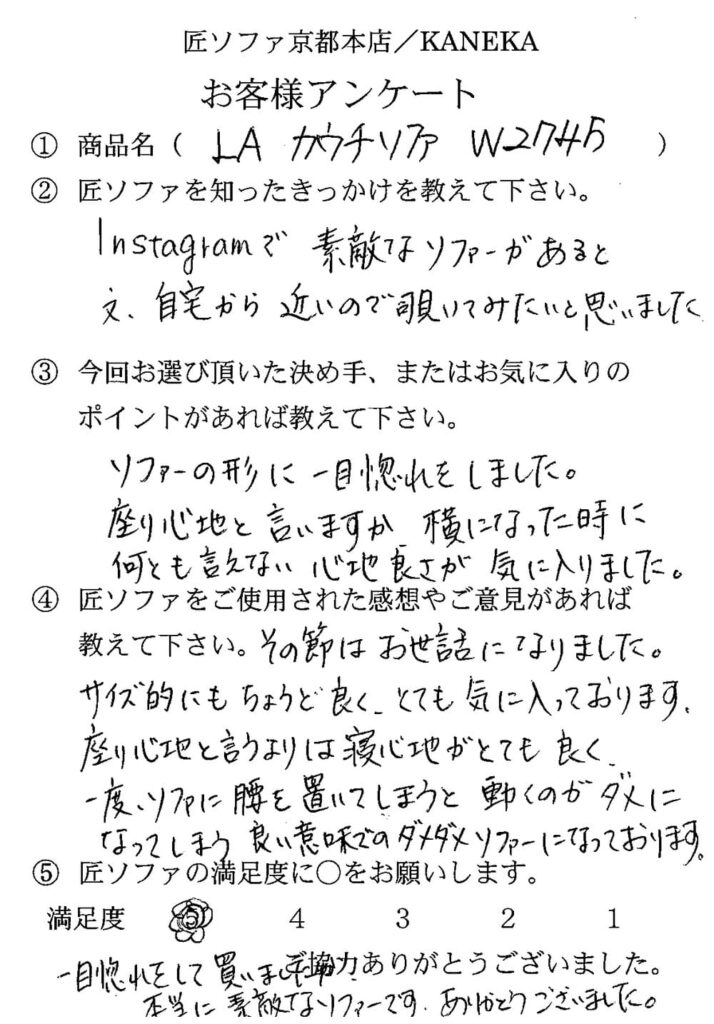 匠ソファ京都本店／KANEKA
お客様アンケート
① 商品名（ LA カウチソファ W2745 ）
② 匠ソファを知ったきっかけを教えて下さい。
Instagramで 素敵なソファーがあると
又、自宅から 近いので覗いてみたいと思いました
③ 今回お選び頂いた決め手、またはお気に入りの
ポイントがあれば教えて下さい。
ソファーの形に 一目惚れをしました。
座り心地と 言いますか 横になった時に
何とも言えない 心地良さが 気に入りました。
④ 匠ソファをご使用された感想やご意見があれば
教えて下さい。その節は お世話になりました。
サイズ的にも ちょうど良く、とても 気に入っております。
座り心地と言うよりは 寝心地がとても 良く、
一度、ソファに 腰を 置いてしまうと 動くのが ダメに
なってしまう 良い意味でのダメダメソファーになっております。
⑤ 匠ソファの満足度に〇をお願いします。
満足度 5 4 3 2 1
ご協力ありがとうございました。
一目惚れをして 買いました
本当に 素敵なソファーです。ありがとうございました。